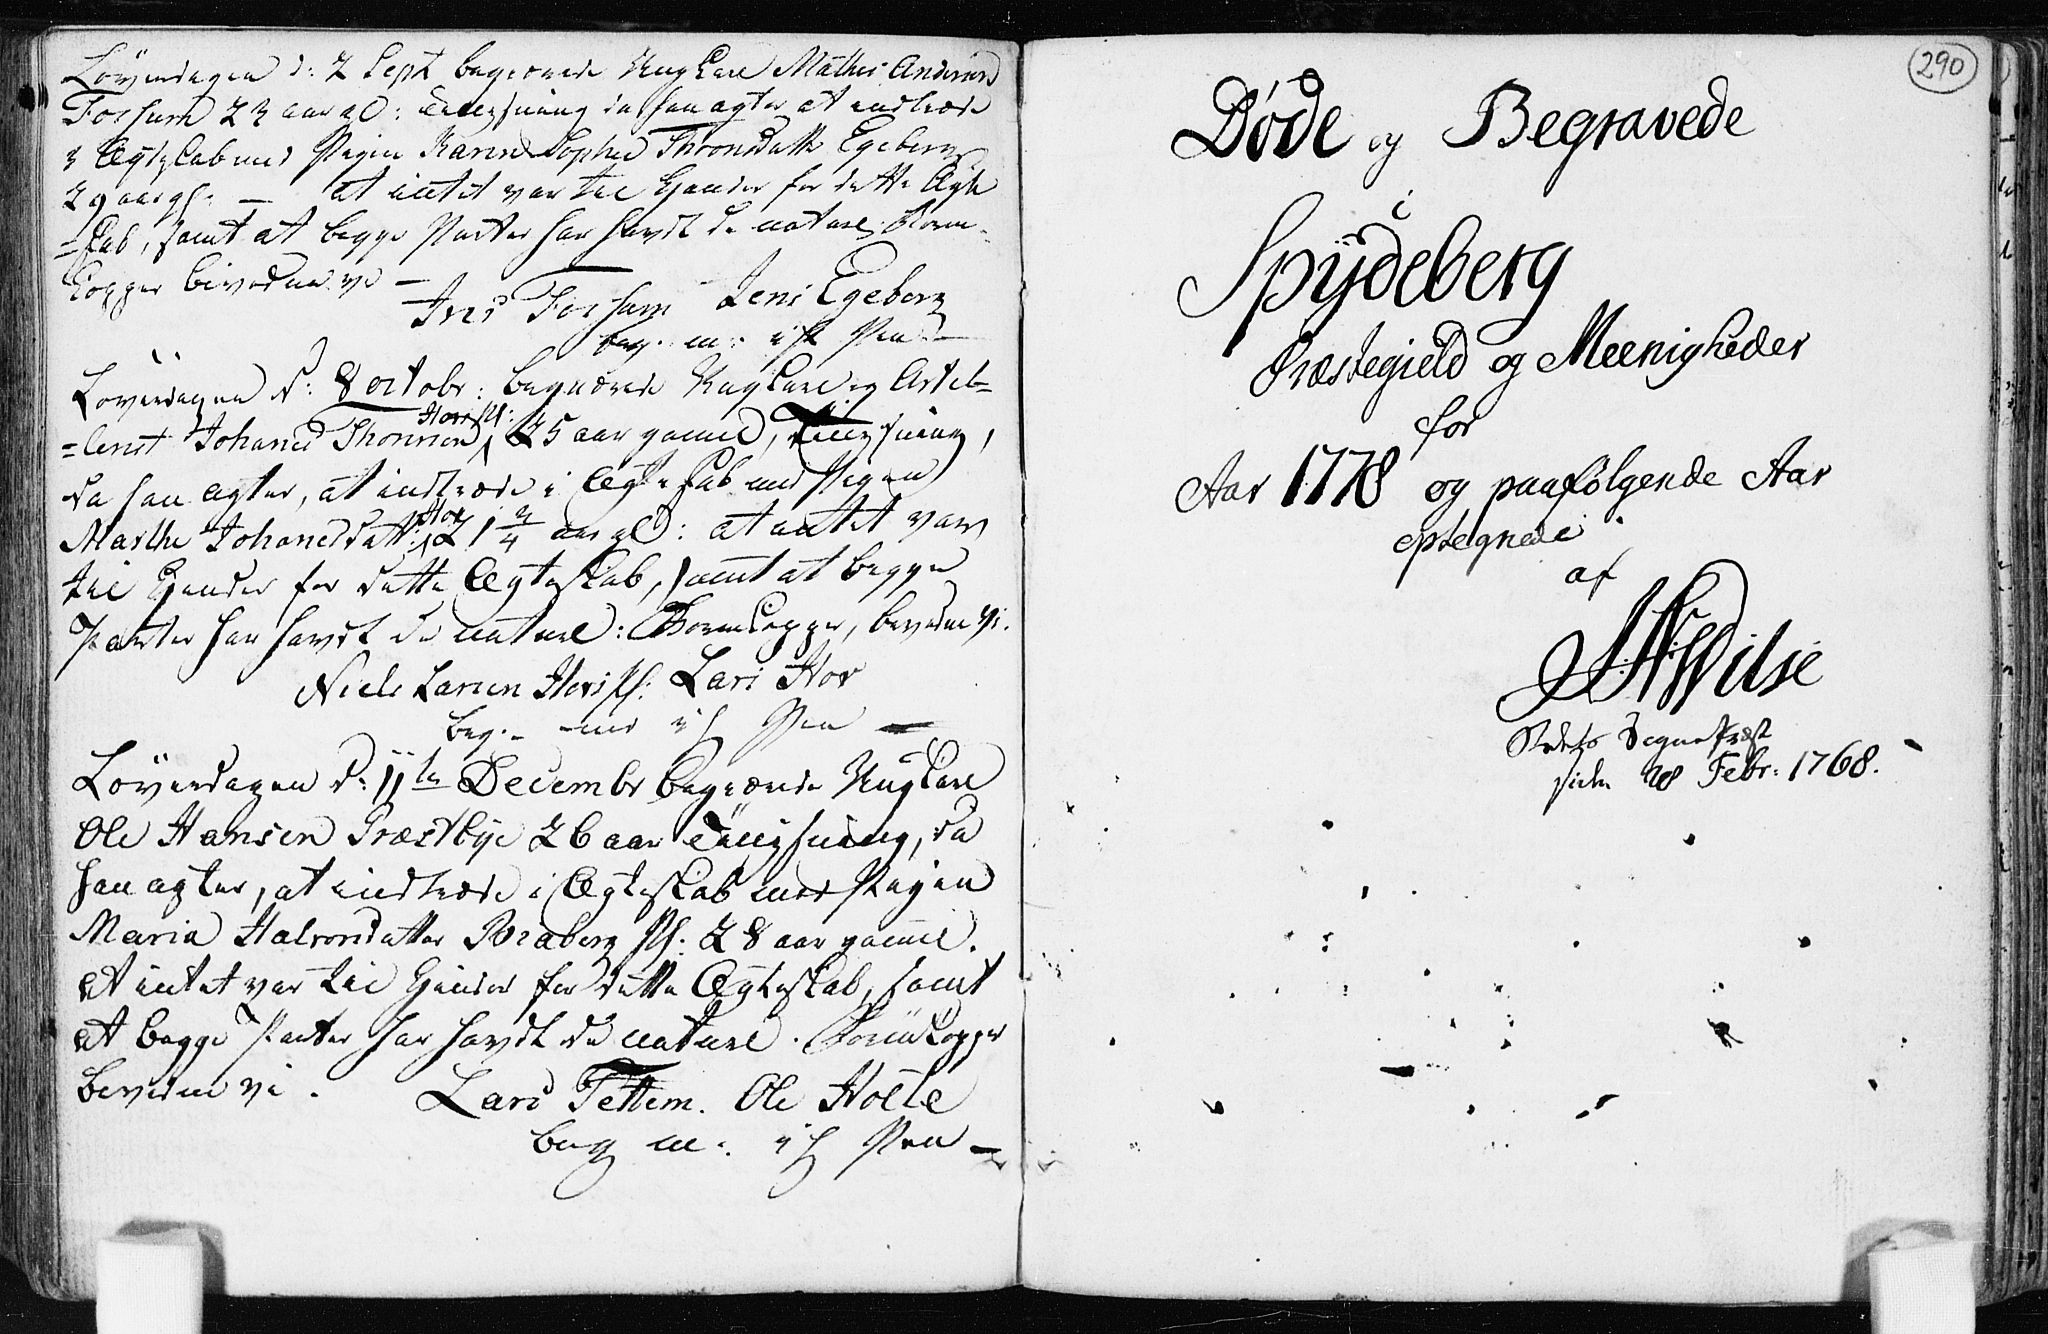 Løverdagen d: 2 Sept begierede Ungkarl Mathis Andersen
Fossum 23 aar gl: Tillysning da han agter at indtræde
i Ægteskab med Pigen Karen Sophie Thronsdatt Egeberg
29 aar gl: – at intet var til Hinder for dette Ægte
=skab, samt at begge Parter har havdt de naturl: Børne-
kopper bevidner vi –
Fossum Jens Egeberg
beg. m: i h Pen –
Løverdagen d: 8 octobr: begierede Ungkarl og Artil=
=lerist Johanes Thorersen Hovspl: 25 aar gammel, Tillysning,
da han agter, at indtræde i Ægteskab med Pigen
Marthe Johanesdatt: Hov 21 3/4 aar gl: at intet var
til Hinder for dette Ægteskab, samt at begge
Parter har havdt de naturl: Børnekopper, bevidne vi.
Niels Larsen Hovspl: Lars Hov
beg. med i h Pen –
Løverdagen d: 11te Decembr begierede Ungkarl
Ole Hansen Præstbye 26 aar Tillysning, da
han agter, at indtræde i Ægteskab med Pigen
Maria Halvorsdatter Braberg Pl: 28 aar gammel.
at intet var til Hinder for dette Ægteskab, samt
at begge Parter har havdt de naturl. Børnekopper
bevidne vi. Lars Tettem. Ole Holle
beg m: i h Pen –
290
Døde og Begravede
i
Spydeberg
Præstegield og Meenigheder
for
Aar 1778 og paafølgende Aar
optegnede
af
JNWilse
Stedets Sognepræst
siden 28 Febr: 1768.